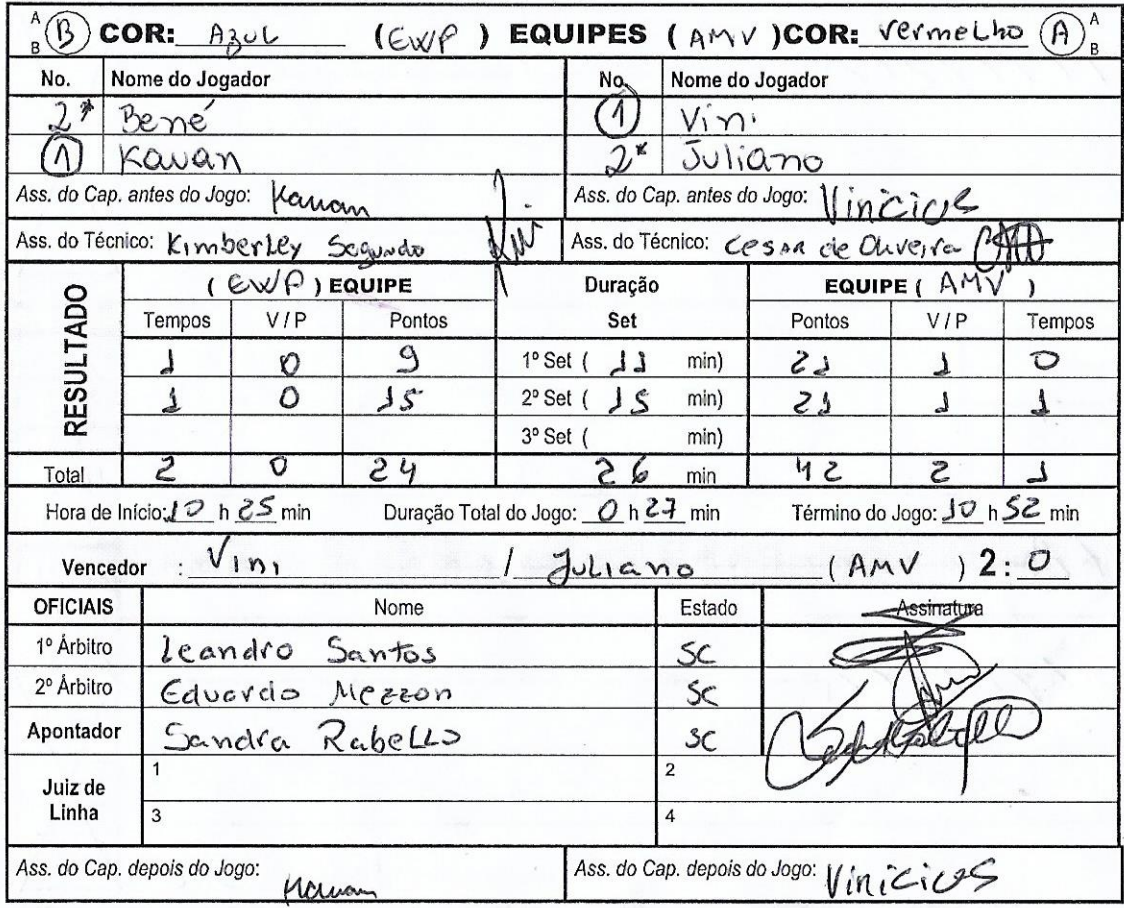 A B (B) COR: Azul (EWP) EQUIPES (AMV) COR: Vermelho (A) A B
No. Nome do Jogador No. Nome do Jogador
2* Bené 1 Vini
1 Kauan 2* Juliano
Ass. do Cap. antes do Jogo: Kauan Ass. do Cap. antes do Jogo: Vinicius
Ass. do Técnico: Kimberley Segundo Ass. do Técnico: Cesar de Oliveira
RESULTADO (EWP) EQUIPE Duração EQUIPE (AMV)
Tempos V / P Pontos Set Pontos V / P Tempos
1 0 9 1º Set ( 11 min) 21 1 0
1 0 15 2º Set ( 15 min) 21 1 1
3º Set ( min)
Total 2 0 24 26 min 42 2 1
Hora de Início: 10 h 25 min Duração Total do Jogo: 0 h 27 min Término do Jogo: 10 h 52 min
Vencedor : Vini / Juliano (AMV) 2: 0
OFICIAIS Nome Estado Assinatura
1º Árbitro Leandro Santos SC
2º Árbitro Eduardo Mezzon SC
Apontador Sandra Rabello SC
Juiz de Linha 1 2
3 4
Ass. do Cap. depois do Jogo: Kauan Ass. do Cap. depois do Jogo: Vinicius